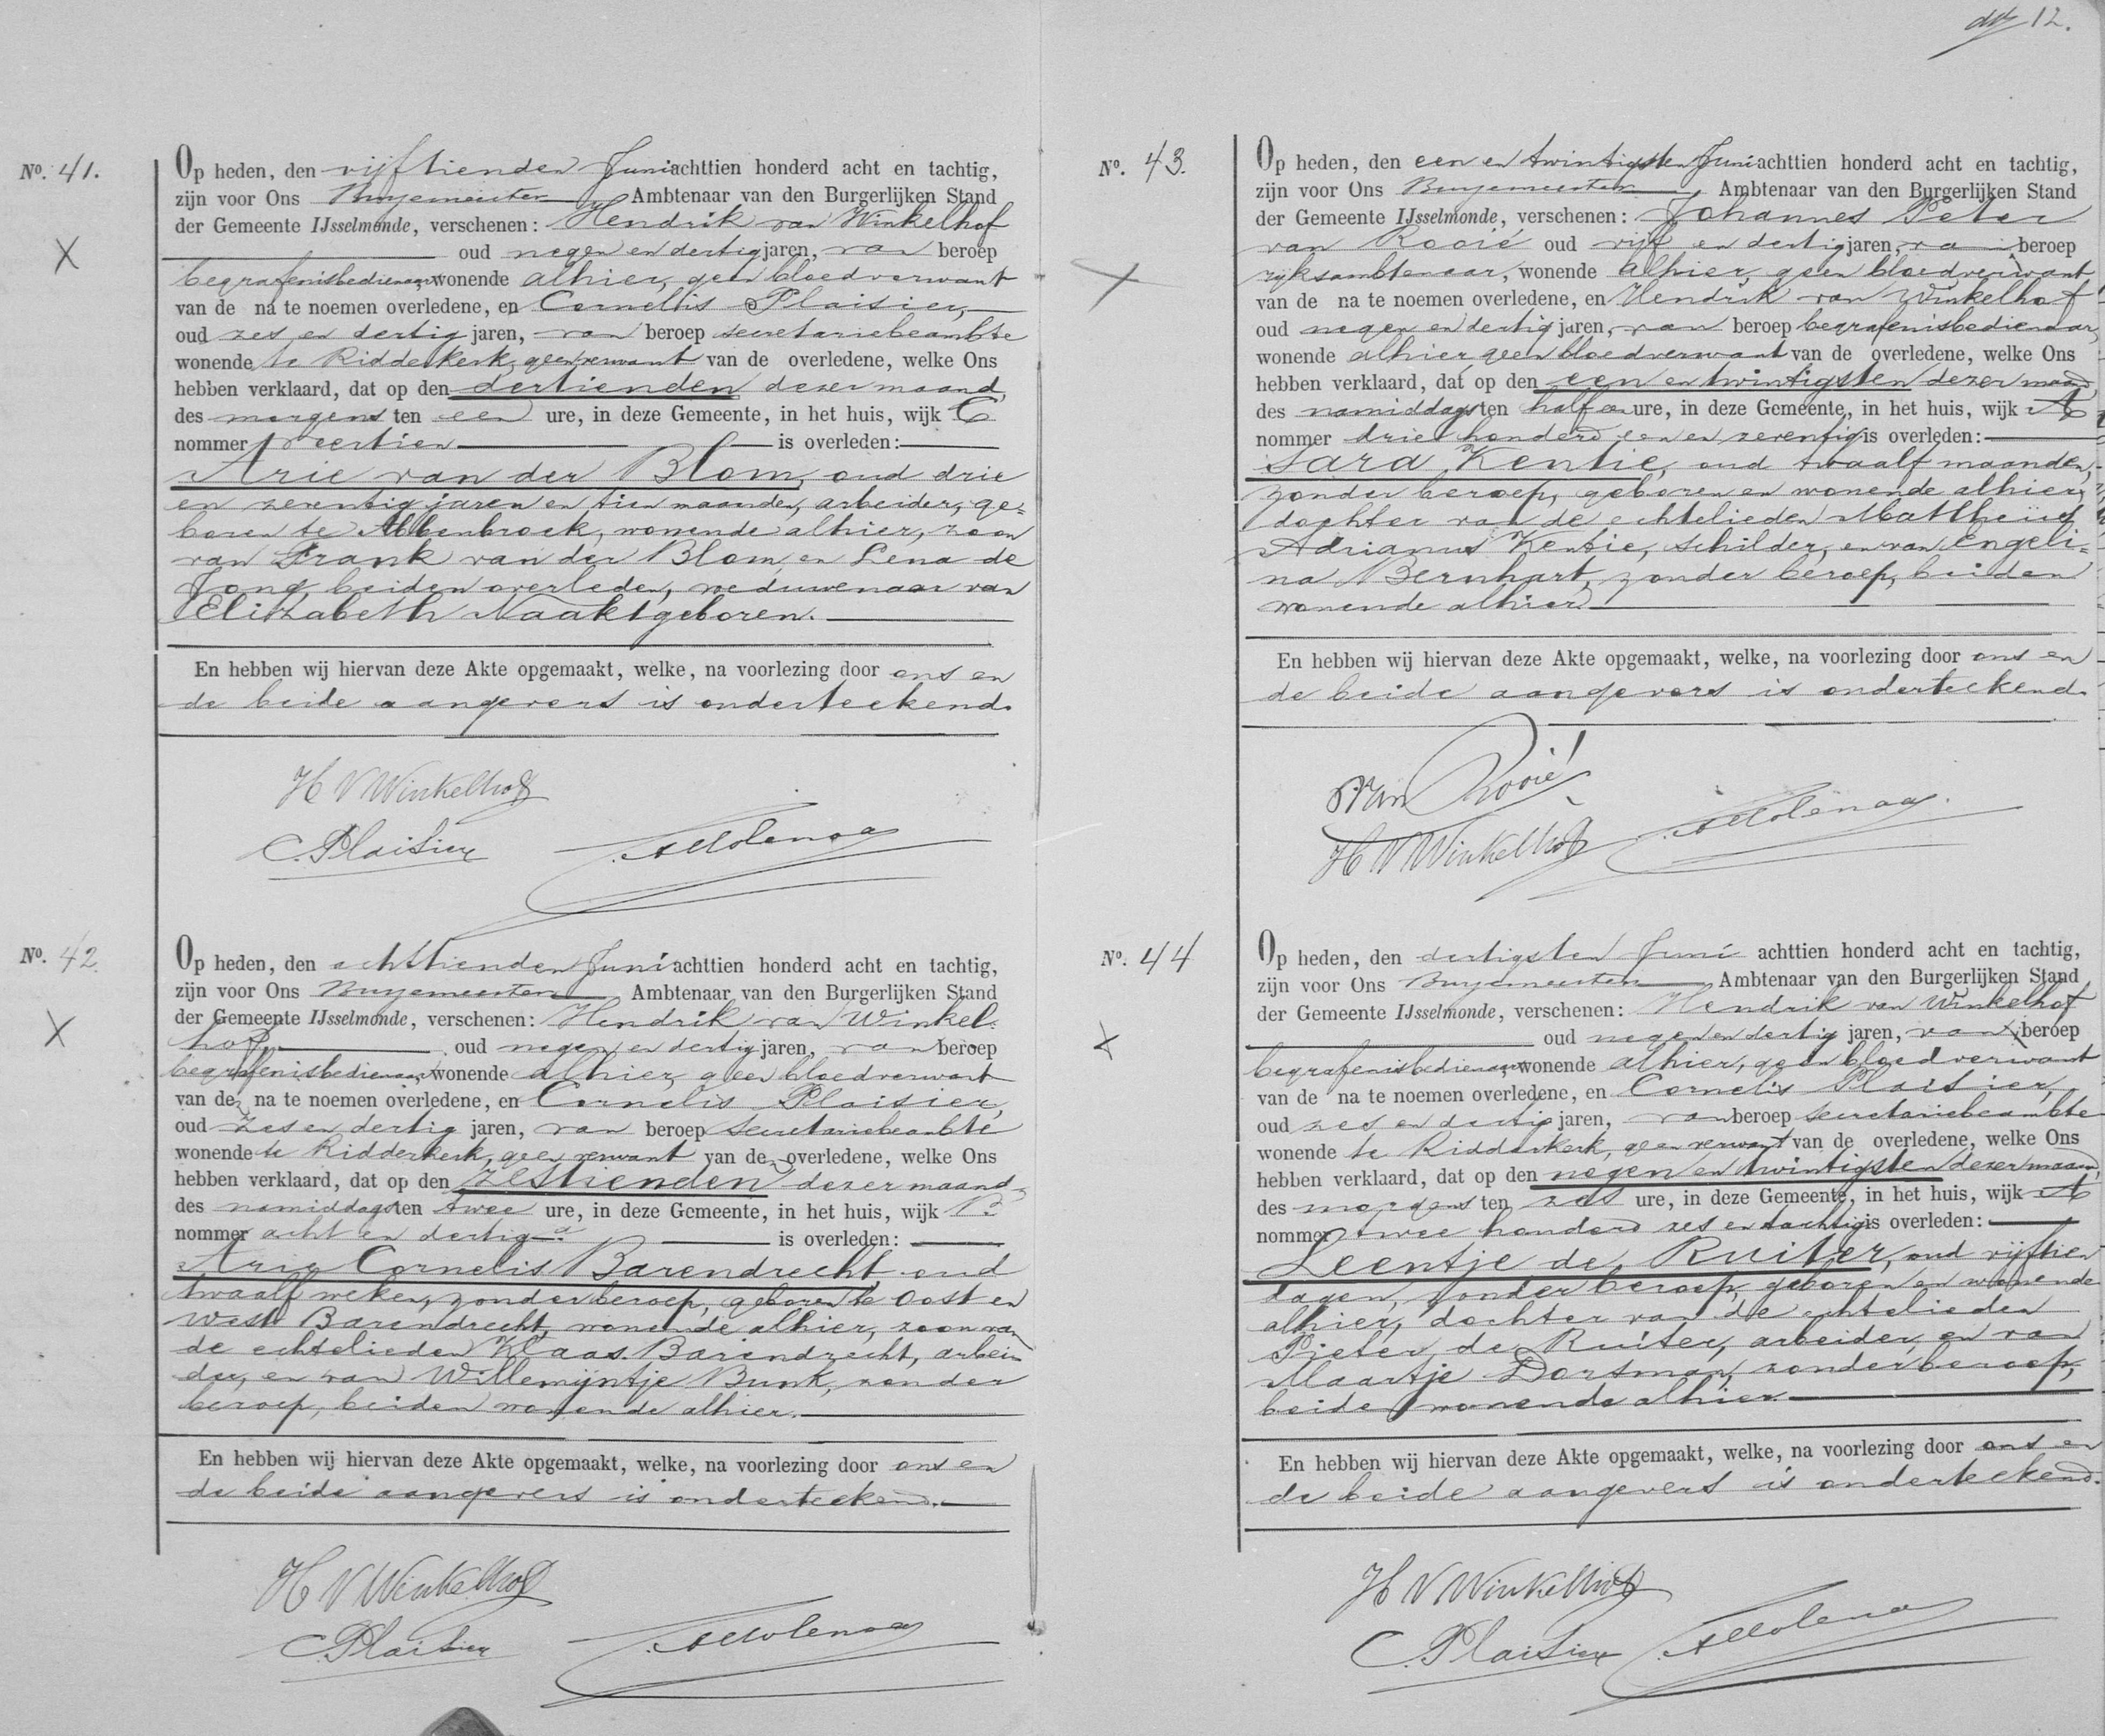 dz 12.
No. 41.
X
Op heden, den vijftienden Juni achttien honderd acht en tachtig,
zijn voor Ons Burgemeester, Ambtenaar van den Burgerlijken Stand
der Gemeente IJsselmonde, verschenen: Hendrik van Winkelhof
oud negen en dertig jaren, van beroep
begrafenisbedienaar wonende alhier, geen bloedverwant
van de na te noemen overledene, en Cornelis Plaisier,
oud zes en dertig jaren, van beroep secretariebeambte
wonende te Ridderkerk, geen verwant van de overledene, welke Ons
hebben verklaard, dat op den dertienden dezer maand,
des morgens ten een ure, in deze Gemeente, in het huis, wijk C
nommer veertien is overleden:
Arie van der Blom, oud drie
en zeventig jaren en tien maanden, arbeider, ge=
boren te Abbenbroek, wonende alhier, zoon
van Frank van der Blom en Lena de
Jong, beiden overleden, weduwenaar van
Elizabeth Naaktgeboren.
En hebben wij hiervan deze Akte opgemaakt, welke, na voorlezing door ons en
de beide aangevers is onderteekend.
H V Winkelhof
C. Plaisier
A Molenaar
No. 42.
X
Op heden, den achttienden Juni achttien honderd acht en tachtig,
zijn voor Ons Burgemeester Ambtenaar van den Burgerlijken Stand
der Gemeente IJsselmonde, verschenen: Hendrik van Winkel-
hof, oud negen en dertig jaren, van beroep
begrafenisbedienaar, wonende alhier, geen bloedverwant
van de na te noemen overledene, en Cornelis Plaisier,
oud zes en dertig jaren, van beroep secretariebeambte
wonende te Ridderkerk, geen verwant van de overledene, welke Ons
hebben verklaard, dat op den zestienden dezer maand,
des namiddags ten twee ure, in deze Gemeente, in het huis, wijk B
nommer acht en dertig a is overleden:
Arie Cornelis Barendrecht, oud
twaalf weken, zonder beroep, geboren te Oost en
West Barendrecht, wonende alhier, zoon van
de echtelieden Klaas Barendrecht, arbei=
der, en van Willemijntje Bunk, zonder
beroep, beiden wonende alhier.
En hebben wij hiervan deze Akte opgemaakt, welke, na voorlezing door ons en
de beide aangevers is onderteekend.
H V Winkelhof
C. Plaisier
A Molenaar
No. 43.
X
Op heden, den een en twintigsten Juni achttien honderd acht en tachtig,
zijn voor Ons Burgemeester, Ambtenaar van den Burgerlijken Stand
der Gemeente IJsselmonde, verschenen: Johannes Peter
van Rooié oud vijf en dertig jaren, van beroep
rijksambtenaar, wonende alhier, geen bloedverwant
van de na te noemen overledene, en Hendrik van Winkelhof
oud negen en dertig jaren, van beroep begrafenisbedienaar,
wonende alhier, geen bloedverwant van de overledene, welke Ons
hebben verklaard, dat op den een en twintigsten dezer maand
des namiddags ten half een ure, in deze Gemeente, in het huis, wijk A
nommer drie honderd een en zeventig is overleden:
Sara Kentie, oud twaalf maanden,
zonder beroep, geboren en wonende alhier,
dochter van de echtelieden Mattheüs
Adrianus Kentie, schilder, en van Engeli=
na Bernhart, zonder beroep, beiden
wonende alhier.
En hebben wij hiervan deze Akte opgemaakt, welke, na voorlezing door ons en
de beide aangevers is onderteekend.
van Rooié
H V Winkelhof
A Molenaar.
No. 44
X
Op heden, den dertigsten Juni achttien honderd acht en tachtig,
zijn voor Ons Burgemeester Ambtenaar van den Burgerlijken Stand
der Gemeente IJsselmonde, verschenen: Hendrik van Winkelhof
oud negen en dertig jaren, van beroep
begrafenisbedienaar wonende alhier, geen bloedverwant
van de na te noemen overledene, en Cornelis Plaisier,
oud zes en dertig jaren, van beroep secretariebeambte
wonende te Ridderkerk, geen verwant van de overledene, welke Ons
hebben verklaard, dat op den negen en twintigsten dezer maand,
des morgens ten zes ure, in deze Gemeente, in het huis, wijk A
nommer twee honderd zes en tachtig is overleden:
Leentje de Ruiter, oud vijftien
dagen, zonder beroep, geboren en wonende
alhier, dochter van de echtelieden
Pieter de Ruiter, arbeider, en van
Maartje Dortsman, zonder beroep,
beide wonende alhier.
En hebben wij hiervan deze Akte opgemaakt, welke, na voorlezing door ons en
de beide aangevers is onderteekend.
H V Winkelhof
C. Plaisier
A Molenaar